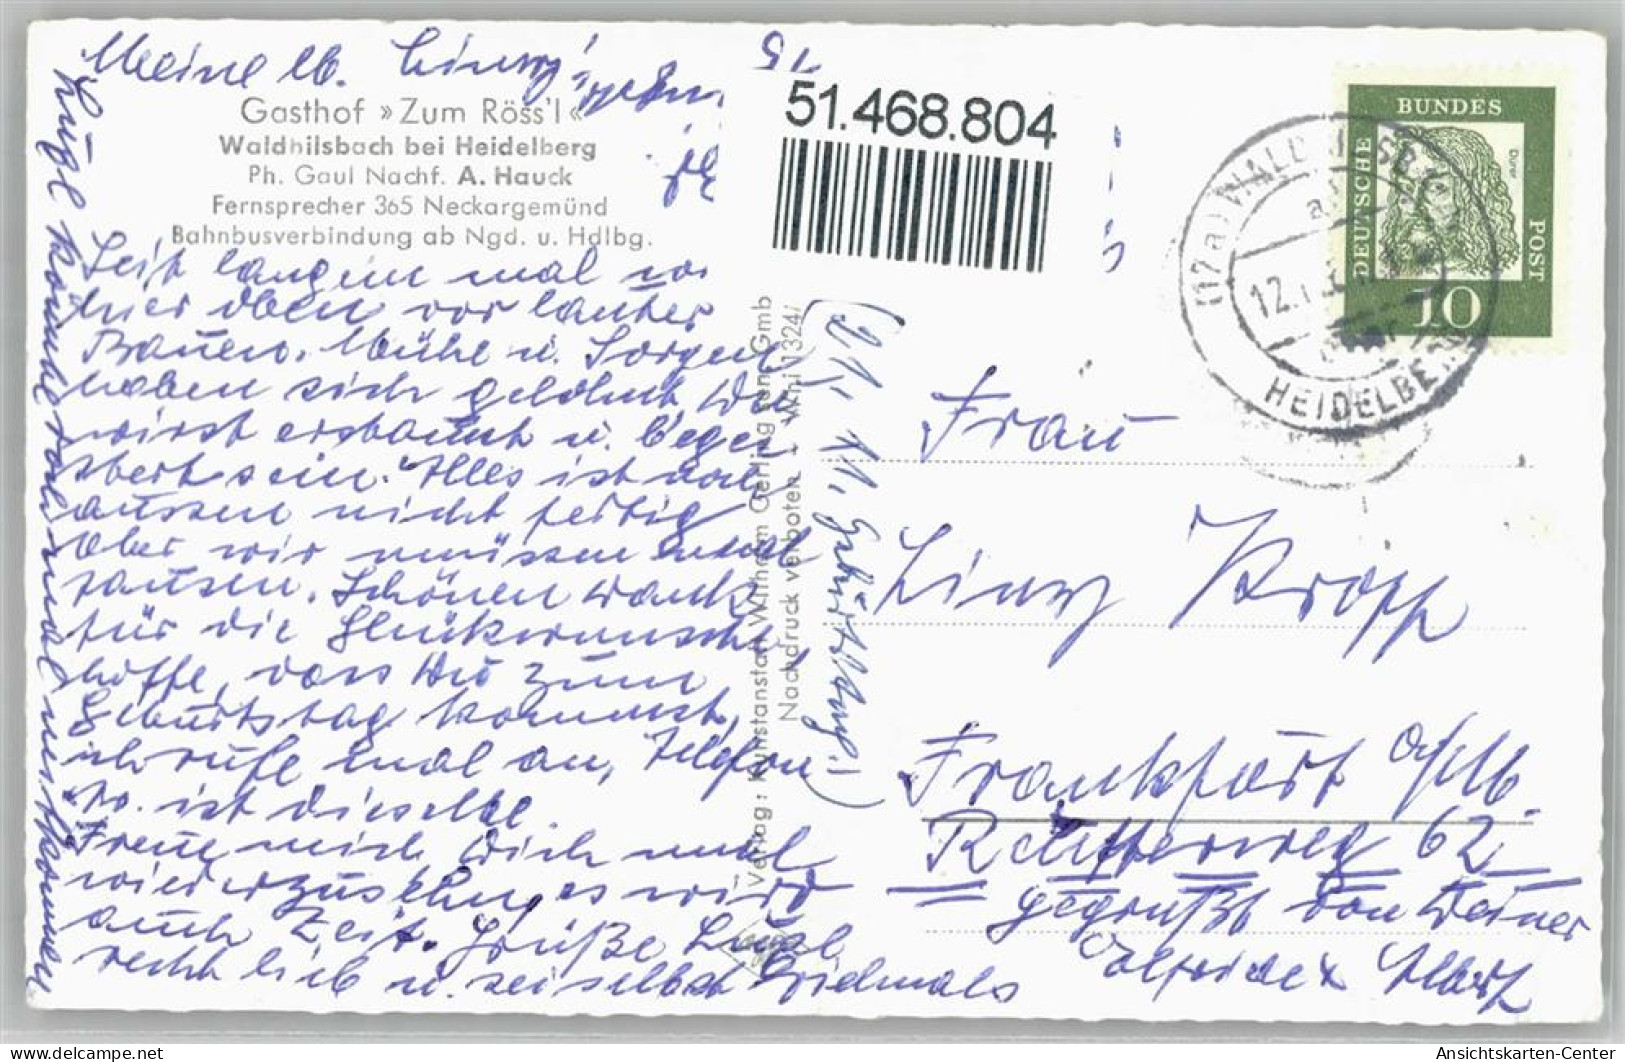 Meine lb. Linny!
Gasthof »Zum Röss'l«
Waldhilsbach bei Heidelberg
Ph. Gaul Nachf. A. Hauck
Fernsprecher 365 Neckargemünd
Bahnbusverbindung ab Ngd. u. Hdlbg.
Seit langem mal
hier oben vor lauter
Bauen. Mühe u. Sorgen
haben sich gelohnt Du
wirst erbaut u. begei
stert sein. Alles ist von
aussen nicht fertig
aber wir müssen mal
. Schönen Dank
für die Glückwünsche,
hoffe, dass Du zum
Geburtstag kommst,
ich rufe mal an, Telefon
No. ist dieselbe.
Freue mich Dich mal
wiederzusehen, es wird
auch Zeit. Grüße
recht lieb u. sei selbst vielmals
51.468.804
Verlag: Kunstanstalt Wilhelm Gerling sen. Gmb
Nachdruck verboten - Whi 1324/
BUNDES
DEUTSCHE
POST
Dürer
10
(17a) WALDHILSBACH
12.
HEIDELBERG
Frau
Linny Kropp
Frankfurt a/M.
62
gegrüßt von Deiner
Albert
Ansichtskarten-Center